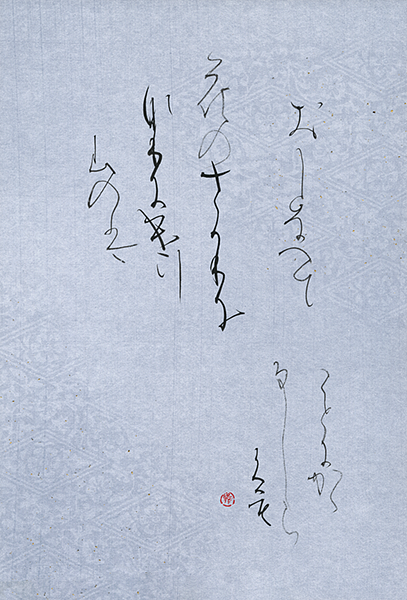 おしなへて
花のさかりに
なりにけり
山のは
ことにかゝ
るしら
くも